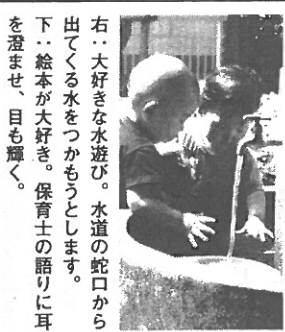 右：大好きな水遊び。水道の蛇口から
出てくる水をつかもうとします。
下：絵本が大好き。保育士の語りに耳
を澄ませ、目も輝く。